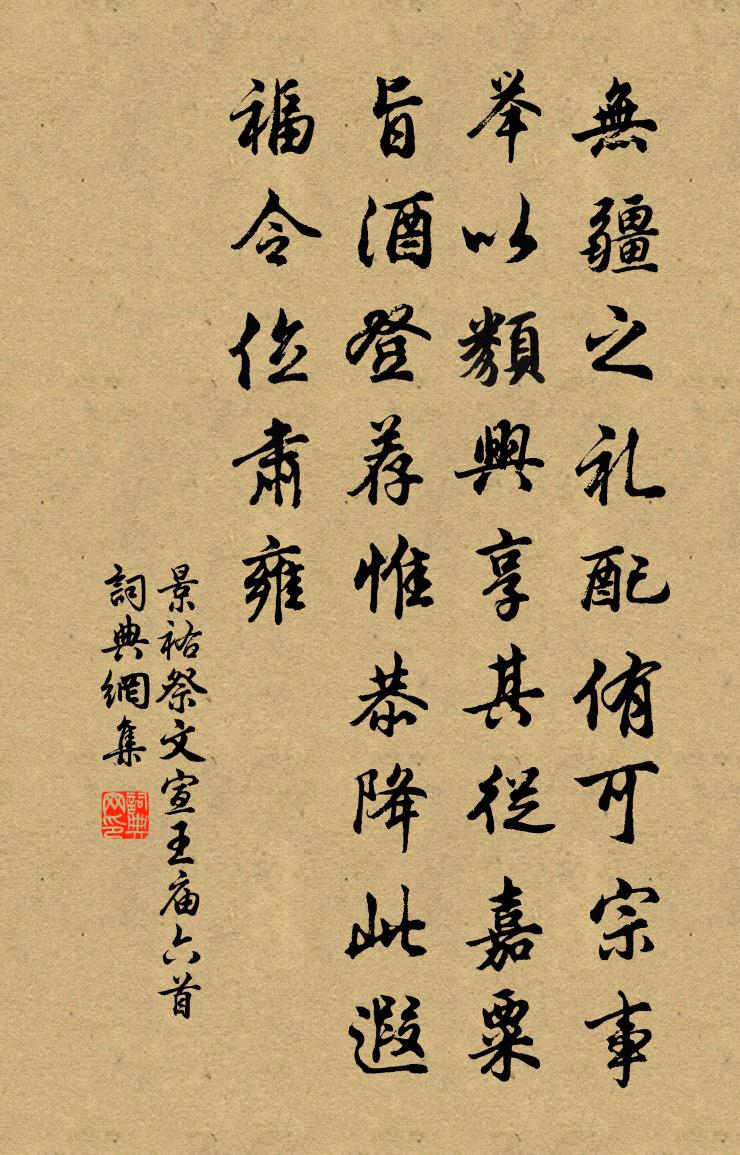 無疆之礼配侑可宗事
举以類興享其從嘉粟
旨酒登荐惟恭降此遐
福令位肃雍
景祐祭文宣王庙六首
詞典網集
詞典网印